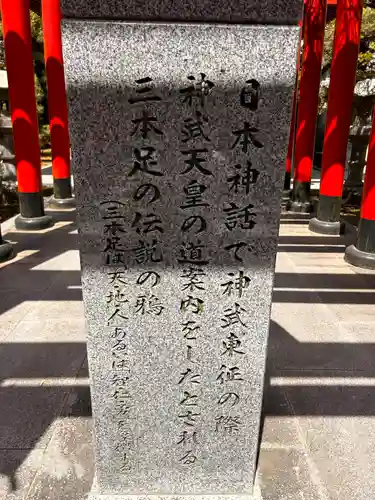 日本神話で神武東征の際
神武天皇の道案内をしたとされる
三本足の伝説の鴉
(三本足は「天地人」あるいは「智仁勇」を